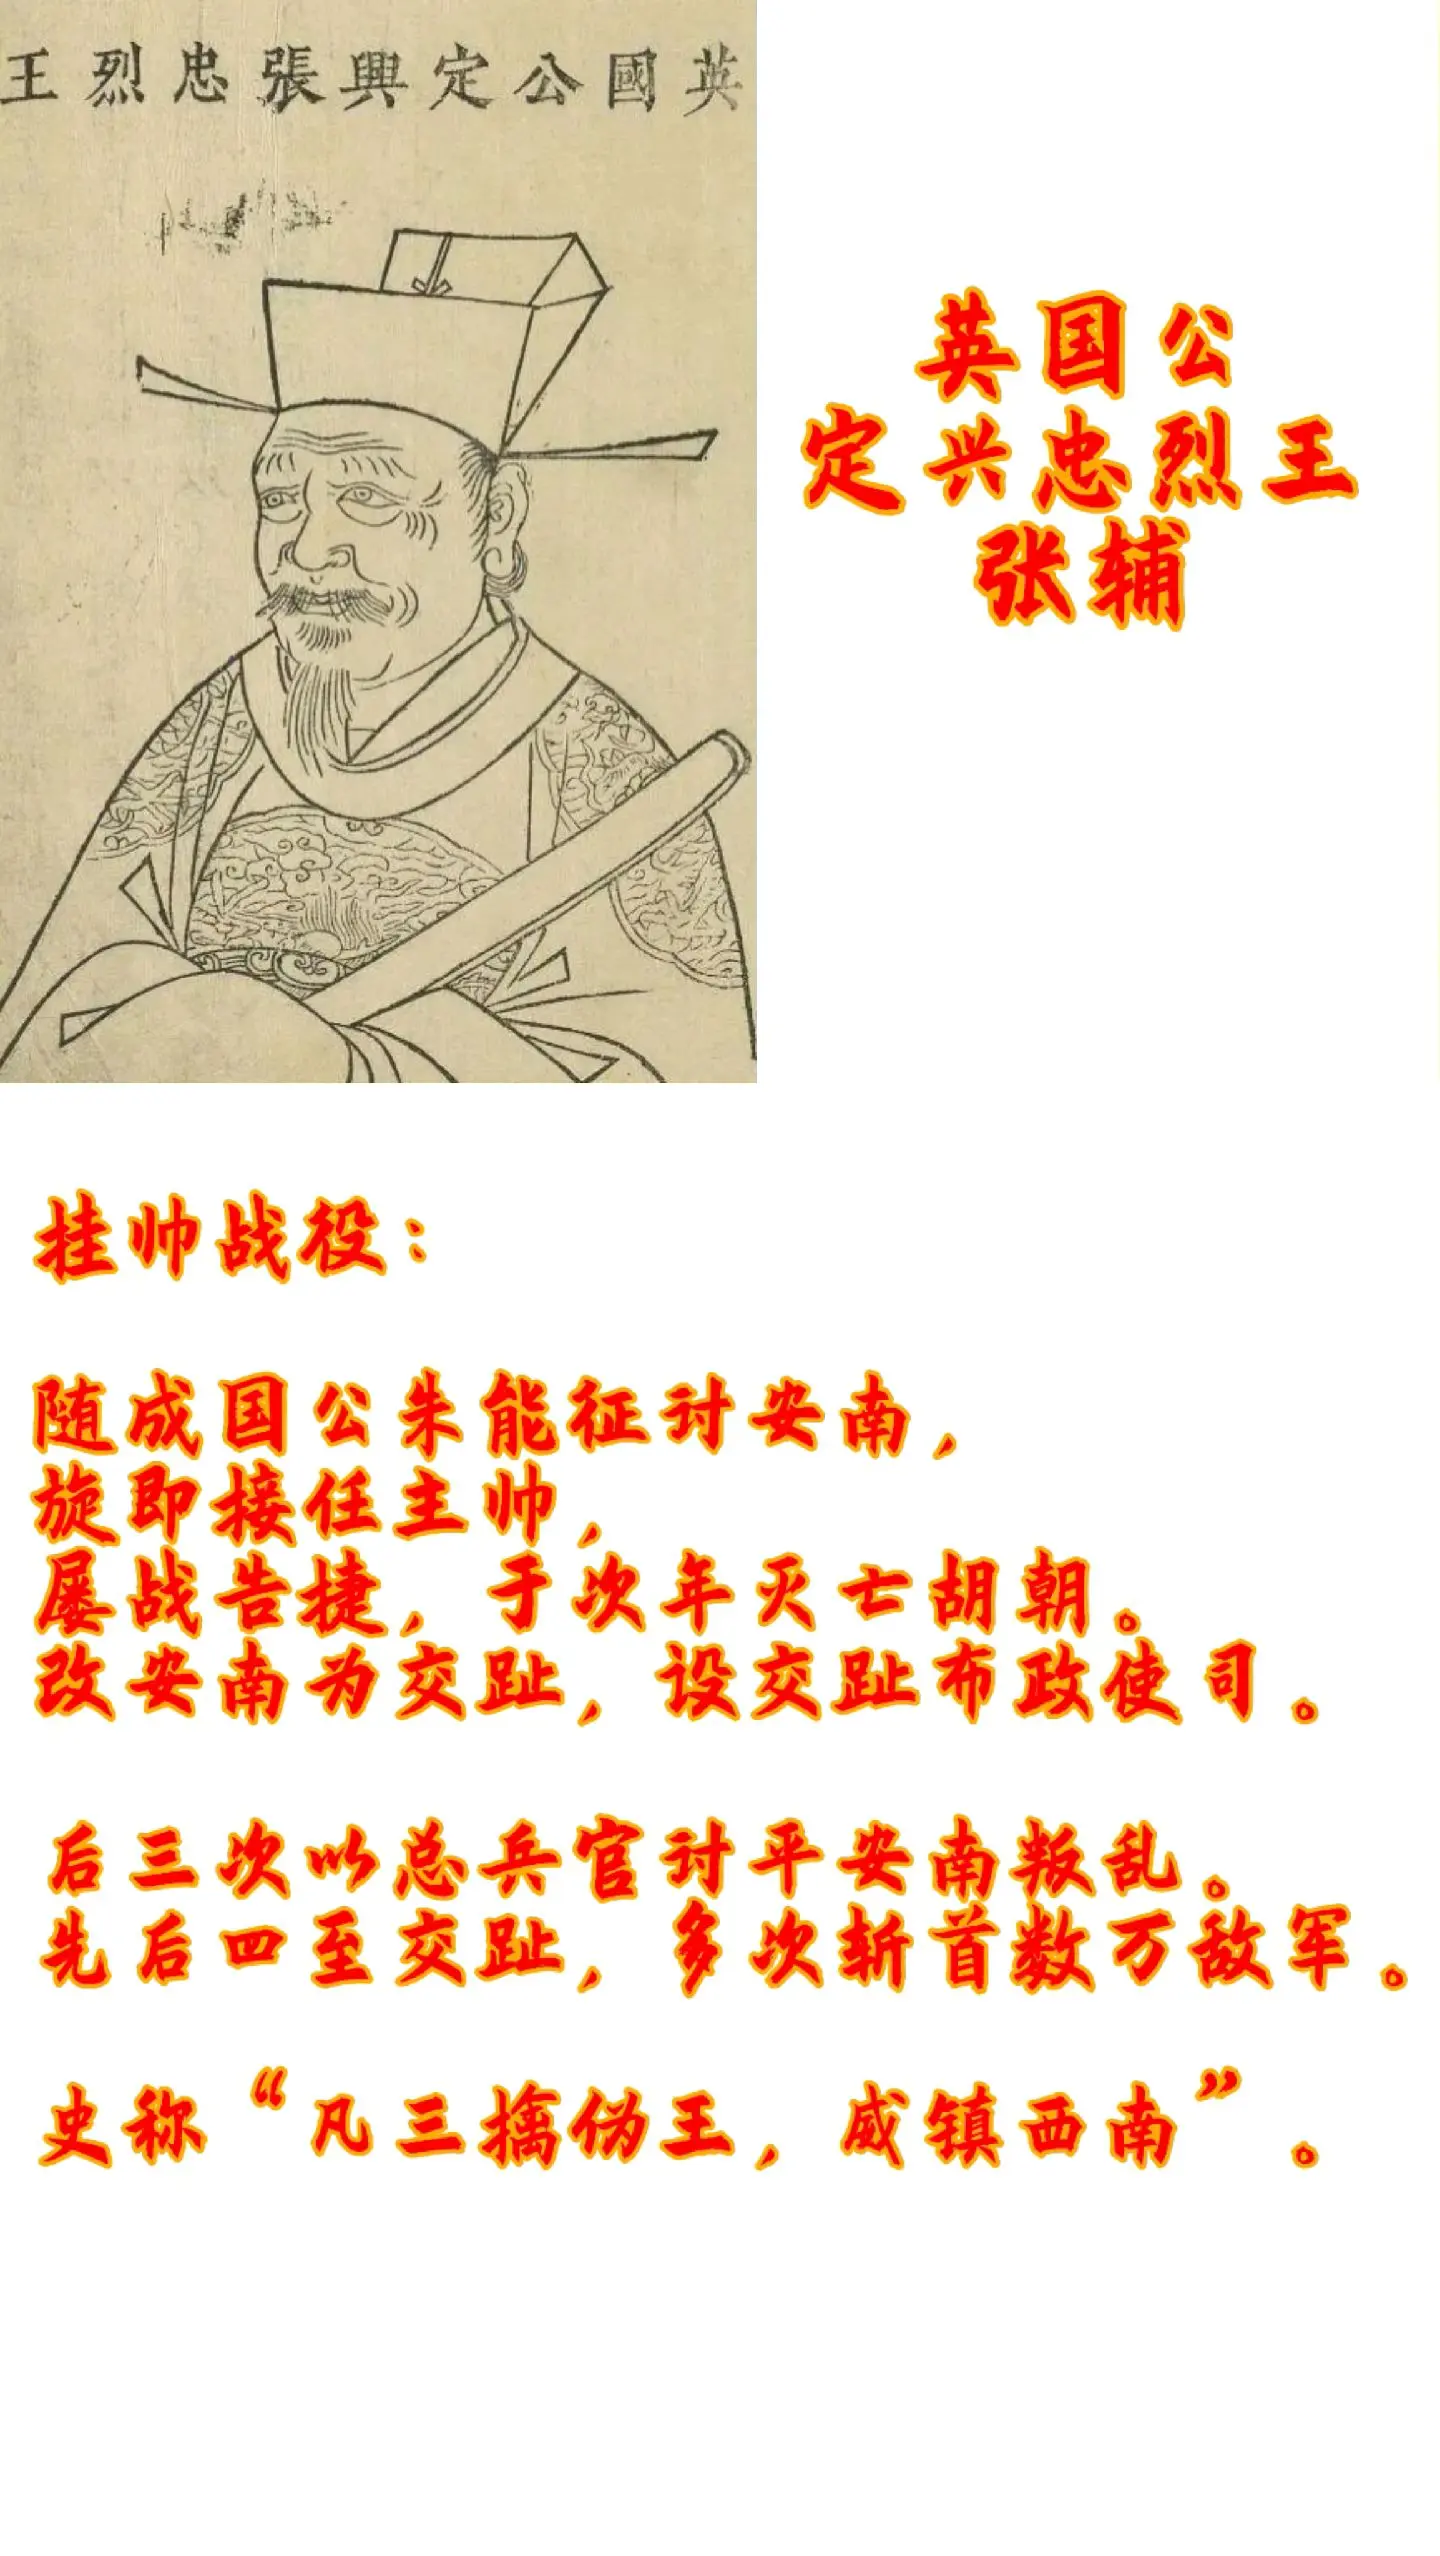 英國公定興張忠烈王
英国公
定兴忠烈王
张辅
挂帅战役：
随成国公朱能征讨安南，
旋即接任主帅，
屡战告捷，于次年灭亡胡朝。
改安南为交趾，设交趾布政使司。
后三次以总兵官讨平安南叛乱。
先后四至交趾，多次斩首数万敌军。
史称“凡三擒伪王，威镇西南”。